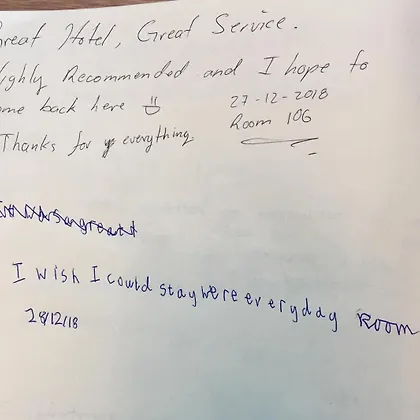 Great Hotel, Great Service.
Highly Recommended and I hope to
come back here
27-12-2018
Room 106
Thanks for everything
I wish I could stay were everyday Room
28/12/18